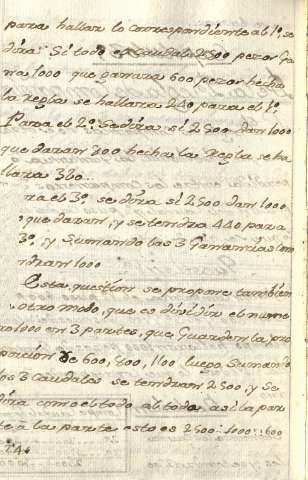 para hallar lo correspondiente al 1º se
dira: Si todo el Caudal 2500 pezos Ga
na 1000 que ganara 600 pezos hecha
la Regla se hallara 240 para el 1º
Para el 2º Se dira si 2500 dan 1000
que daran 800 hecha la Regla se ha
llara 320
ra el 3º se dira si 2500 dan 1000
que daran, y se tendra 440 para
3º, y Sumando las 3 Ganancias
ndran 1000
Esta question se propone tambien
otro modo, que es dividir el nume
ro 1000 em 3 partes, que Guarden la pro
porcion de 600, 800, 1100 luego Sumando
los 3 Caudales se tendran 2500, y Se
dira como el todo al todo, asi la par
te à la parte esto es 2500::1000::600
24